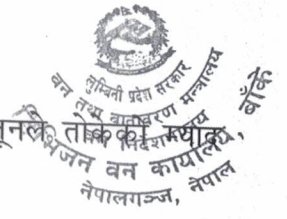 लुम्बिनी प्रदेश सरकार
वन तथा वातावरण मन्त्रालय
वन निर्देशनालय
नूनले तोकेको म्याद
डिभिजन वन कार्यालय, बाँके
नेपालगञ्ज, नेपाल